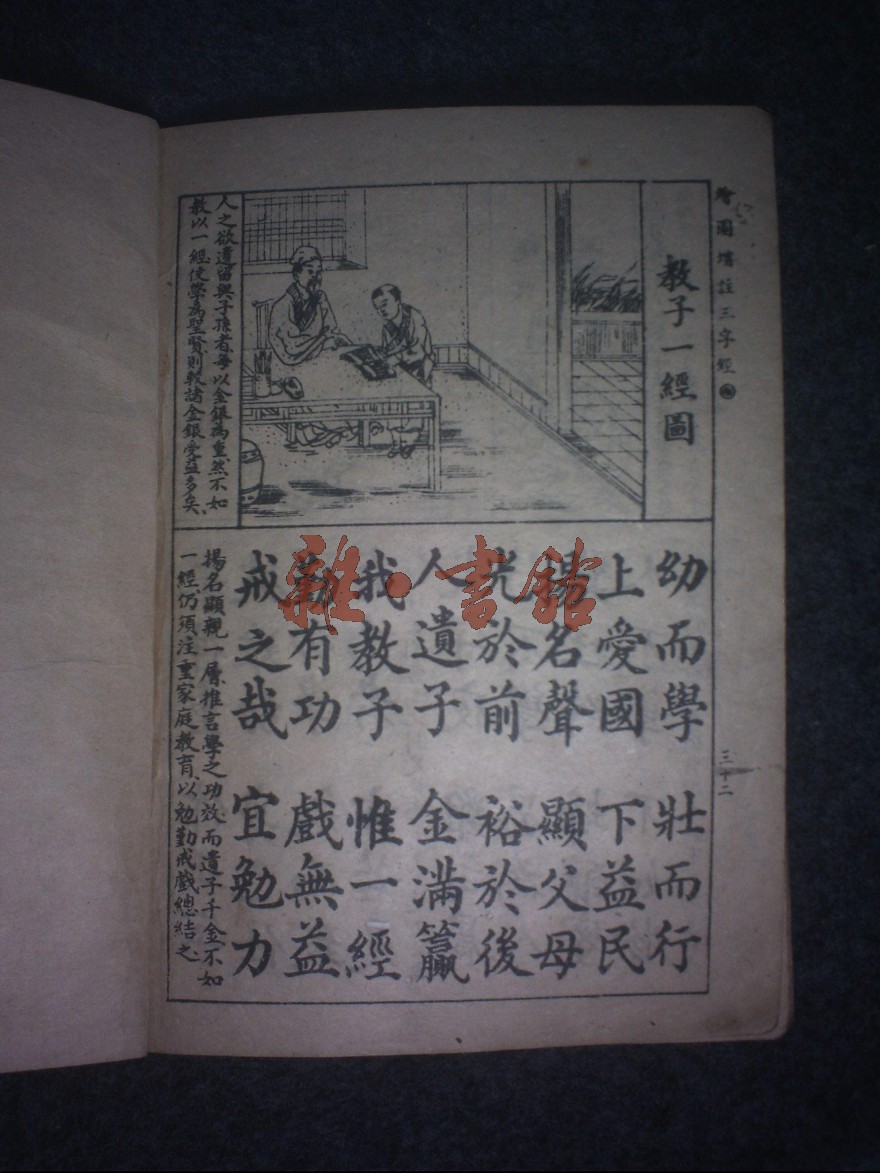 繪圖增註三字經
三十二
教子一經圖
人之欲遺留與子孫者、每以金銀為重、然不如
教以一經、使學為聖賢、則較諸金銀受益多矣、
幼而學 壯而行
上愛國 下益民
揚名聲 顯父母
光於前 裕於後
人遺子 金滿籯
我教子 惟一經
勤有功 戲無益
戒之哉 宜勉力
揚名顯親一層、推言學之功效、而遺子千金不如
一經、仍須注重家庭教育、以勉勤戒戲總結之、
雜·書館